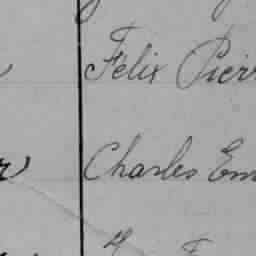 Felix Pierr
Charles Em